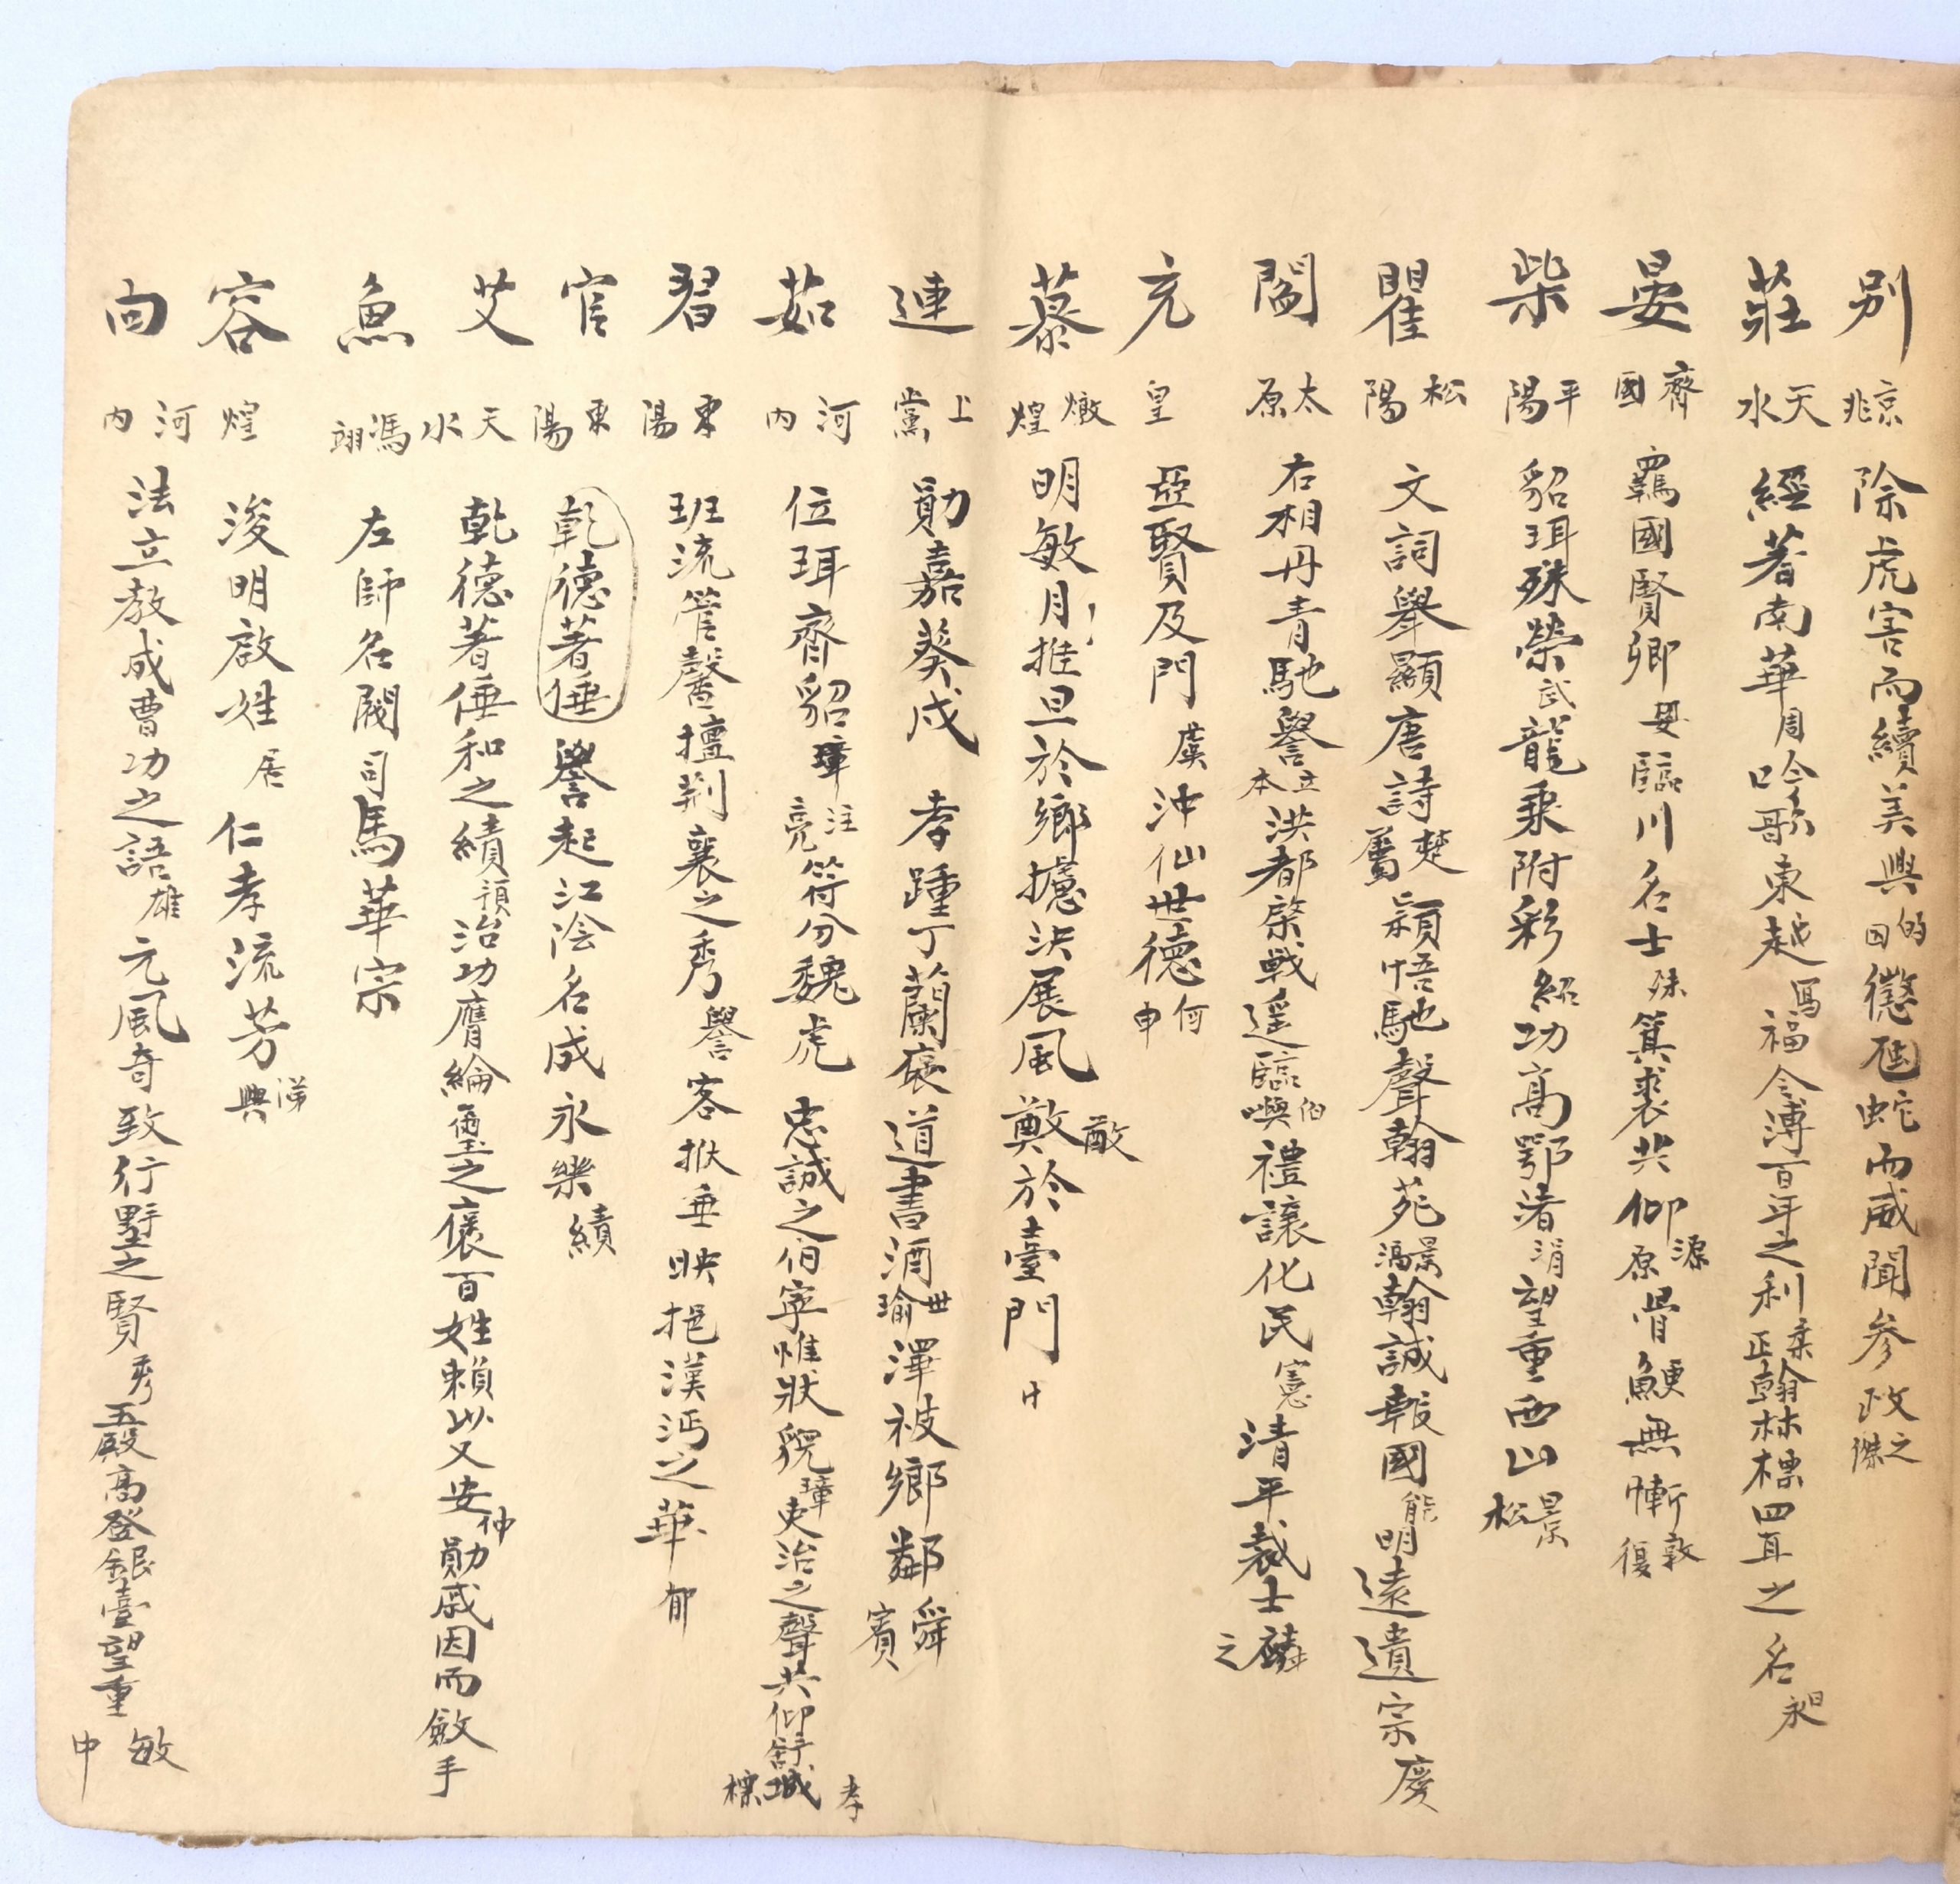 別 京兆 除虎害而續美興 的因 懲虺蛇而威聞參政 之傑
莊 天水 經著南華 周 吟歌東越 舃 福令溥百年之利 柔正 翰林標四直之名 昶
晏 齊國 羈國賢卿 嬰 臨川名士 殊 箕裘共仰 源原 骨鯁無慚 敦復
柴 平陽 貂珥殊榮 武 龍乘附彩 紹 功高鄂渚 涓 望重西山 景松
瞿 松陽 文詞舉顯唐詩 楚薦 穎悟馳聲翰苑 景鴻 翰誠報國 能 明遠遺宗慶
閻 太原 右相丹青馳譽 立本 洪都棨戟遥臨 伯嶼 禮讓化民 憲 清平裁士 之
充 皇 亞賢及門 虞 沖仙世德 何申
慕 燉煌 明敏月推旦於鄉 據決展風 敵 於臺門 中
連 上黨 勛嘉葵戍 孝踵丁蘭 褒道書酒 世瑜 澤被鄉鄰 舜賓
茹 河內 位珥齊貂 璋 注亮 符分魏虎 忠誠之伯寧惟狀貌 璋 吏治之聲共仰舒城 孝標
習 東陽 班流管馨 擅荆襄之秀 譽 客掀垂映 挹漢沔之華 郁
官 東陽 乾德著倕 譽起江陰 名成永樂 績
艾 天水 乾德著倕和之績 預 治功膺綸璽之褒 百姓賴以乂安 仲 勛戚因而斂手
魚 馮翊 左師名閥 司馬華宗
容 煌 浚明啟姓 居 仁孝流芳 悌興
向 河內 法立教成曹功之語 雄 元風奇致行墅之賢 秀 五殿高登 銀臺望重 敏中